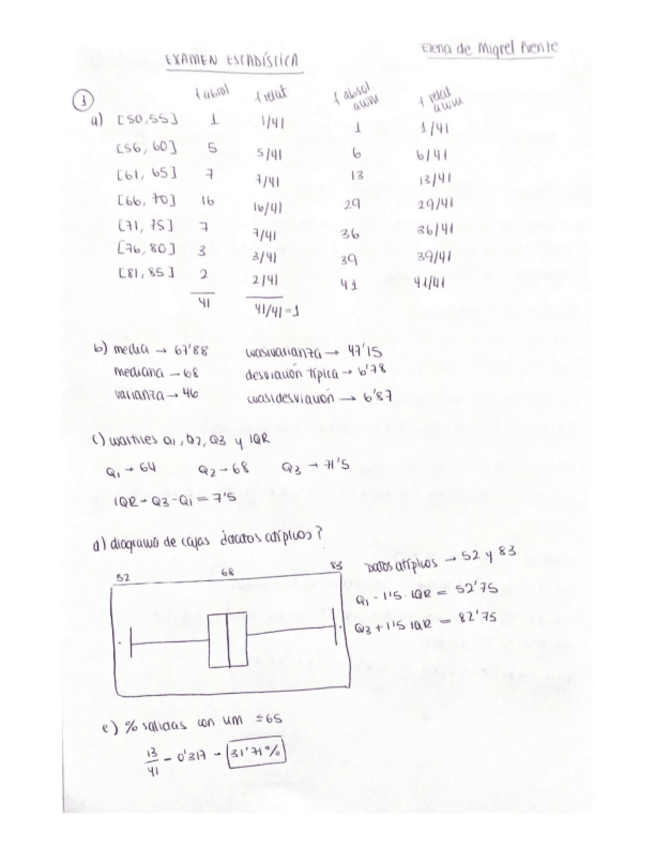 Elena de Miguel Puente
EXAMEN ESTADÍSTICA
f absol f relat f absol acum f relat acum
1
a) [50,55] 1 1/41 1 1/41
[56, 60] 5 5/41 6 6/41
[61, 65] 7 7/41 13 13/41
[66, 70] 16 16/41 29 29/41
[71, 75] 7 7/41 36 36/41
[76, 80] 3 3/41 39 39/41
[81, 85] 2 2/41 41 41/41
41 41/41=1
b) media → 67'88 cuasivarianza → 47'15
mediana → 68 desviación típica → 6'78
varianza → 46 cuasidesviación → 6'87
c) cuartiles Q1, Q2, Q3 y IQR
Q1 → 64 Q2 → 68 Q3 → 71'5
IQR - Q3 - Q1 = 7'5
d) diagrama de cajas ¿datos atípicos?
52 68 83 Datos atípicos → 52 y 83
Q1 - 1'5 · IQR = 52'75
Q3 + 1'5 IQR = 82'75
e) % salidas con um ≤ 65
13/41 - 0'317 - 31'71%